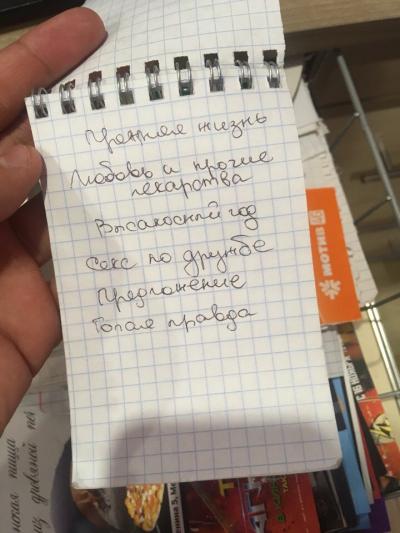 жизнь
Любовь и прочие
лекарства
Высакосный год
Секс по дружбе
Предложение
Голая правда
МОТИВ
нская пицца
дровяной